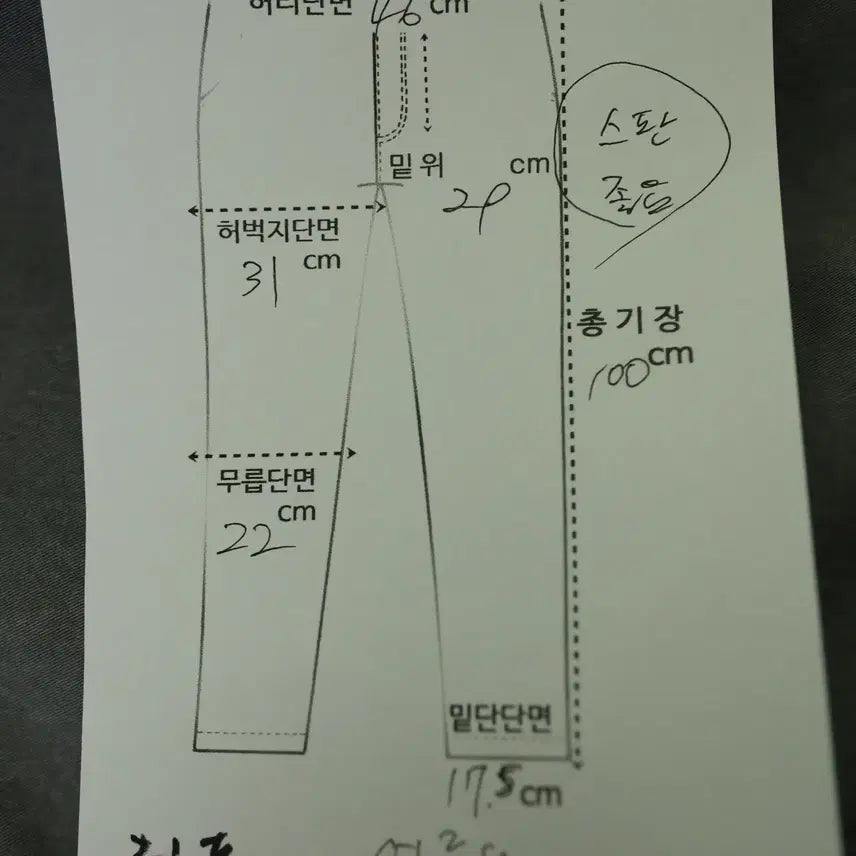 허리단면 46 cm
밑 위 cm
스판
좋음
허벅지단면
31 cm
총 기 장
100 cm
무릅단면
cm
22
밑단단면
17.5 cm